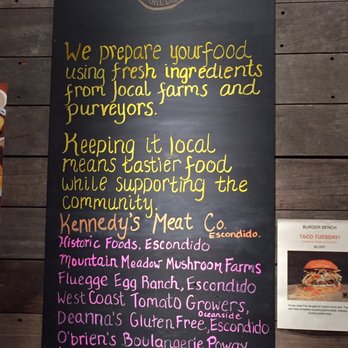 We prepare your food
using fresh ingredients
from local farms and
purveyors.
Keeping it local
means tastier food
while supporting the
community.
Kennedy's Meat Co.
Escondido.
Historic Foods, Escondido
Mountain Meadow Mushroom Farms
Fluegge Egg Ranch, Escondido
West Coast Tomato Growers,
Oceanside
Deanna's Gluten Free, Escondido
O'brien's Boulangerie Poway
BURGER BENCH
TACO TUESDAY!